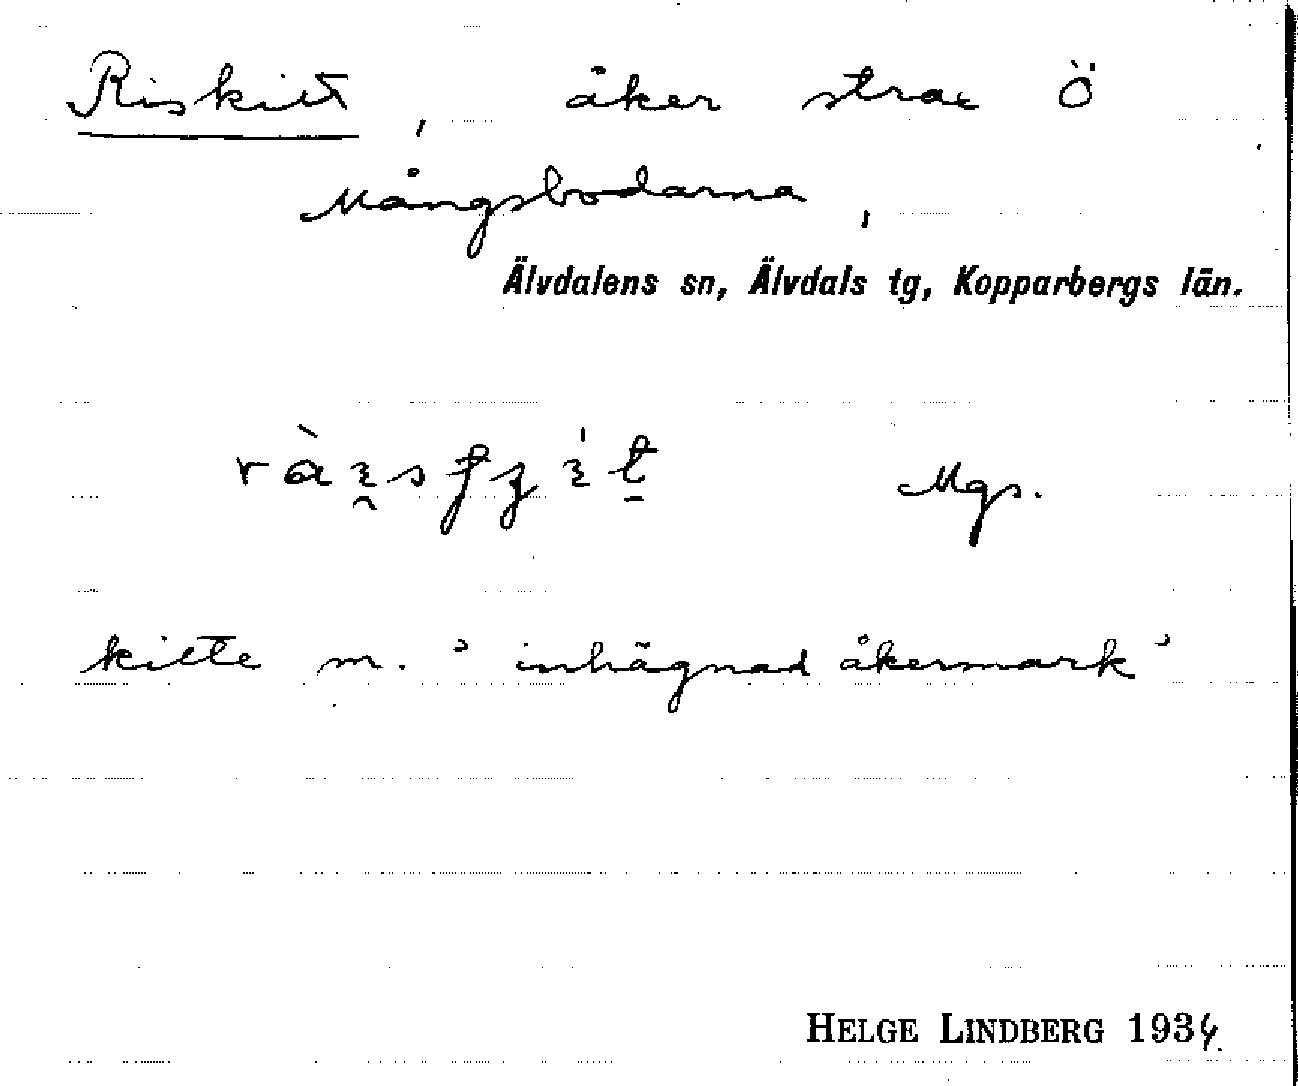 Riskitt, åker strax Ö
Mångsbodarna,
Älvdalens sn, Älvdals tg, Kopparbergs län.
Mgs.
kitte m. ’inhägnad åkermark’
HELGE LINDBERG 1934.